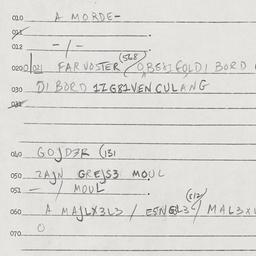 010 A MORDE-
011
012 - / -
020 021 FARVOSTER (568) OBSEIFOLDI BORD
030 DI BORD 1ZG81VEN CULANG
031
040 GOJD7R (131
050 2AJN GREJS3 MOUL
051 - / MOUL
060 A MAJLX3L3 / ESNGL3 / MAL3X
070 O